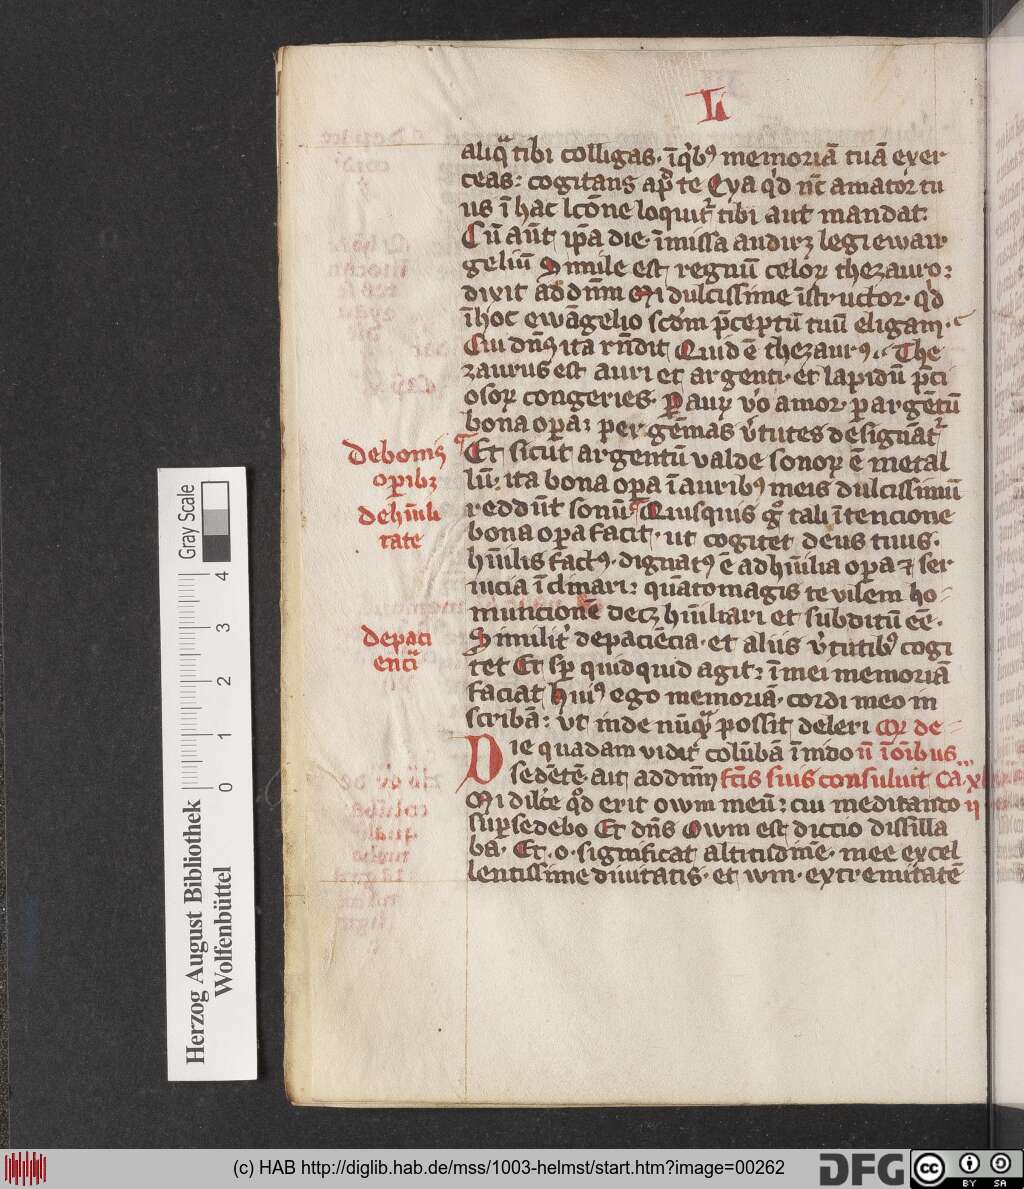 L
aliq̄ tibi colligas. īq̄bꝰ memoriā tuā exer
ceas: cogitans ap̄ te Eya q̇d nc̄ amator tu
us ī hac lcōne loquit᷑ tibi aut mandat:
Cū aūt ip̄a die. ī missa audirꝫ legi ewan
geliū Simile est regnū celoꝝ thezauro:
dixit ad dn̄m Mi dulcissime īstructor. qd̄
ī hoc ewāgelio scd̄m p̄ceptū tuū eligam.
Cui dn̄s ita rn̄dit Quid ē thezaurꝰ. The
zaurus est auri et argenti. et lapidū p̄ci
osoꝝ congeries. ꝑ auꝝ v̇o amor. ꝑ argētū
bona oꝑa: per gēmas v̇tutes designāt᷑
de bonis
Et sicut argentū valde sonoꝝ ē metal
oꝑibꝫ
lū: ita bona oꝑa ī auribꝰ meis dulcissimū
de hūili
reddūt sonū. Quisquis gͦ tali ītencione
tate
bona oꝑa facit. ut cogitet deus tuus.
hūilis factꝰ. dignatꝰ ē ad hūilia oꝑa ⁊ ser
uicia īclinari: quātomagis te vilem ho
muncionē decꝫ hūiliari et subditū eē.
de paci
Similiṫ de paciēcia. et aliis v̇tutibꝰ cogi
encia
tet Et suꝑ quidquid agit: ī mei memoriā
faciat Huiꝰ ego memoriā. cordi meo in
scribā: vt inde nūq̄ possit deleri
Die quadam vidit columbā ī nido
n̄ īoībus
sedētē. ait ad dn̄m
fc̄is suis consuluit Ca. xl
ij
Mi dilc̄e qd̄ erit owm meū: cui meditanto
suꝑsedebo Et dn̄s Owm est dictio dissilla
ba. Et .o. significat altitudinē. mee excel
lentissime diuitatis. et wm. extremitatē
Gray Scale
4
3
2
1
0
Herzog August Bibliothek
Wolfenbüttel
(c) HAB http://diglib.hab.de/mss/1003-helmst/start.htm?image=00262
DFG
cc
BY
SA